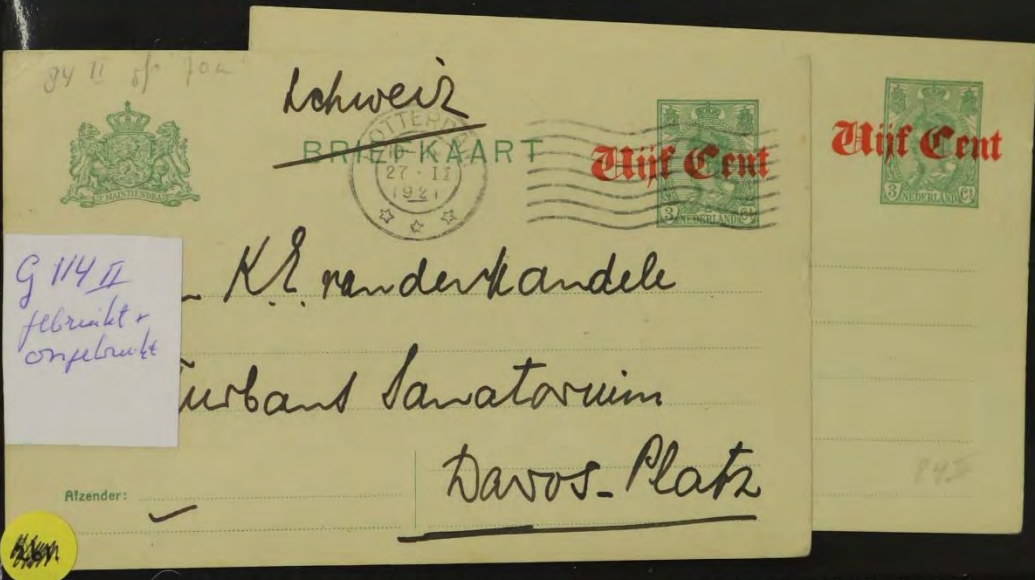 84 II
Schweiz
BRIEFKAART
ROTTERDAM
27 · II
1921
Vijf Cent
3 NEDERLAND Ct
Vijf Cent
3 NEDERLAND Ct
JE MAINTIENDRAI
G 114 II
gebruikt +
ongebruikt
K.E. van der Mandele
Turbans Sanatorium
Davos-Platz
Afzender:
84 II